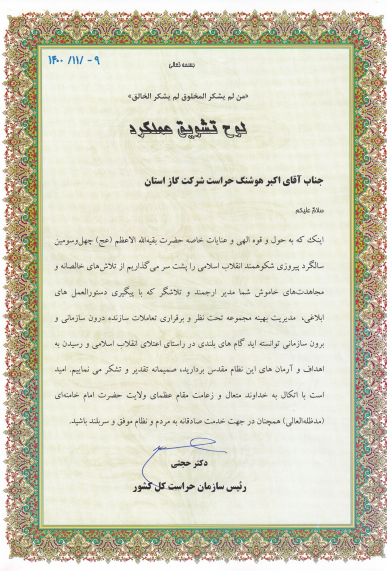 ۱۴۰۰ /۱۱/ ۰۹
بسمه تعالی
«من لم یشکر المخلوق لم یشکر الخالق»
لوح تشویق عملکرد
جناب آقای اکبر هوشنگ حراست شرکت گاز استان
سلامٌ علیکم
اینک که به حول و قوه الهی و عنایات خاصه حضرت بقیه‌الله الاعظم (عج) چهل‌وسومین
سالگرد پیروزی شکوهمند انقلاب اسلامی را پشت سر می‌گذاریم از تلاش‌های خالصانه و
مجاهدت‌های خاموش شما مدیر ارجمند و تلاشگر که با پیگیری دستورالعمل های
ابلاغی، مدیریت بهینه مجموعه تحت نظر و برقراری تعاملات سازنده درون سازمانی و
برون سازمانی توانسته اید گام های بلندی در راستای اعتلای انقلاب اسلامی و رسیدن به
اهداف و آرمان های این نظام مقدس بردارید، صمیمانه تقدیر و تشکر می نماییم. امید
است با اتکال به خداوند متعال و زعامت مقام عظمای ولایت حضرت امام خامنه‌ای
(مدظله‌العالی) همچنان در جهت خدمت صادقانه به مردم و نظام موفق و سربلند باشید.
دکتر حجتی
رئیس سازمان حراست کل کشور